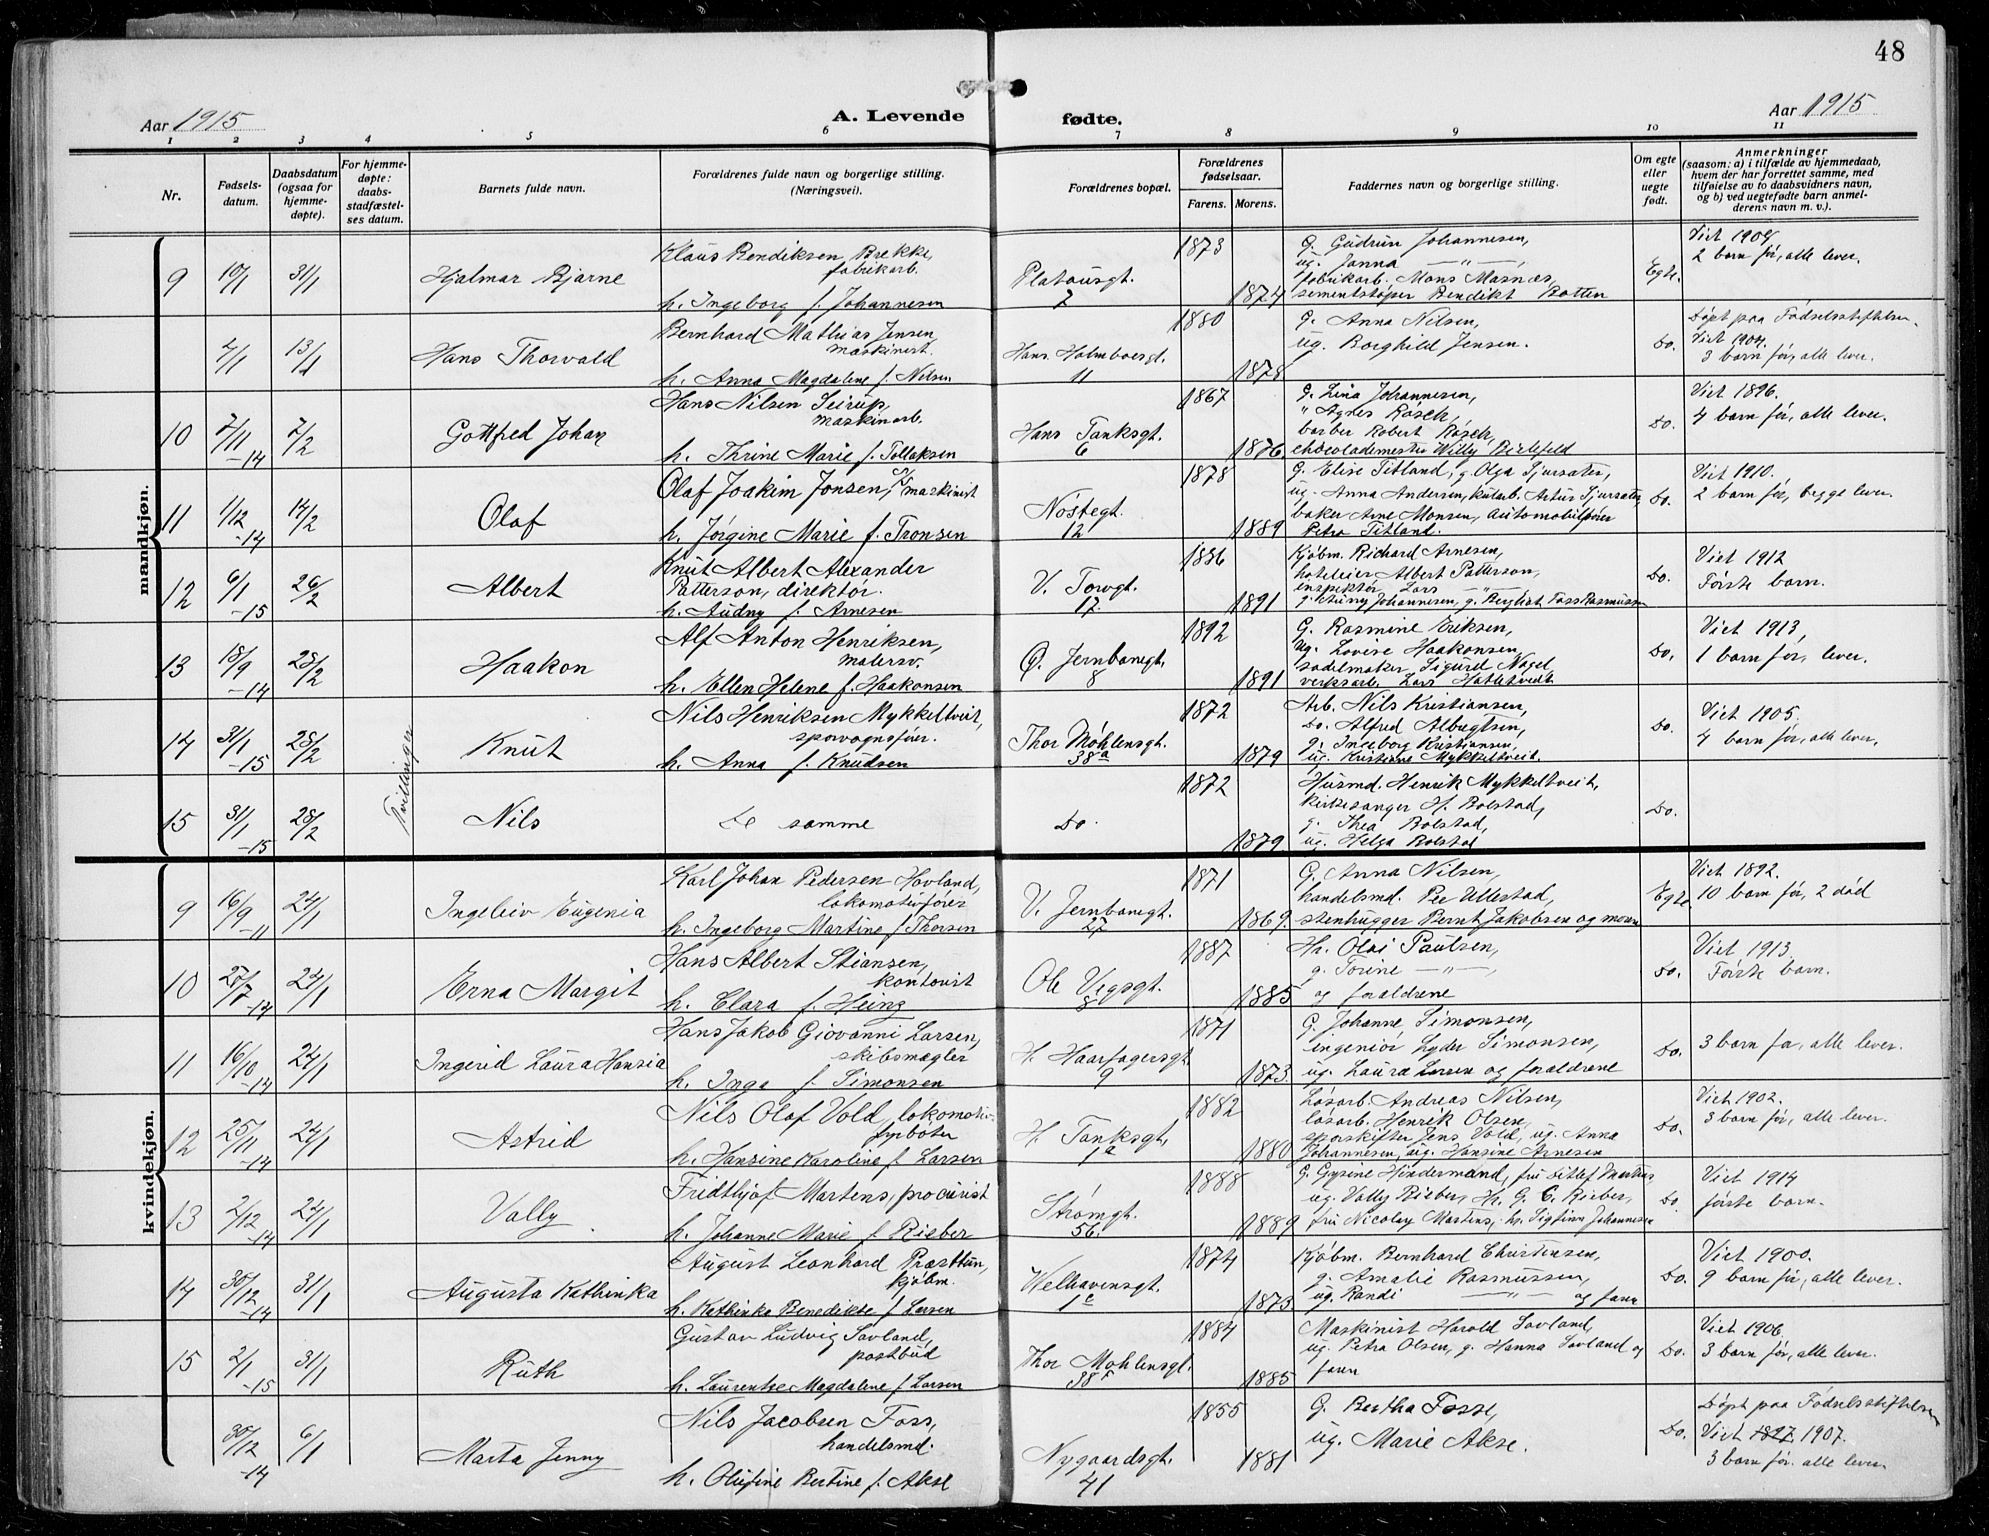 48
Aar 1915
A. Levende fødte.
Aar 1915
1 2 3 4 5 6 7 8 9 10 11
Nr.
Fødsels-
datum.
Daabsdatum
(ogsaa for
hjemme-
døpte).
For hjemme-
døpte:
daabs-
stadfæstel-
ses datum.
Barnets fulde navn.
Forældrenes fulde navn og borgerlige stilling.
(Næringsvei).
Forældrenes bopæl.
Forældrenes
fødselsaar.
Farens. Morens.
Faddernes navn og borgerlige stilling.
Om egte
eller
uegte
født.
Anmerkninger
(saasom: a) i tilfælde av hjemmedaab,
hvem der har forrettet samme, med
tilføielse av to daabsvidners navn,
og b) ved uegtefødte barn anmel-
derens navn m. v.).
mandkjøn.
9 10/1 31/1 Hjalmar Bjarne
Klaus Bendiksen Brekke,
fabrikarb.
h. Ingeborg f. Johannesen
Platousgt.
7
1873 1874
G. Gudrun Johannesen,
ug. Janna — " —,
fabrikarb. Mons Masnæs,
sementstøper Bendikt Botten
Egte.
Viet 1904
2 barn før, alle lever.
2/1 13/1 Hans Thorvald
Bernhard Mathias Jensen,
maskinist.
h. Anna Magdalene f. Nilsen
Hans Holmboesgt.
11
1880 1878
G. Anna Nilsen,
ug. Borghild Jensen.
Do.
Døpt paa Fødselsstiftelsen.
Viet 1904.
3 barn før, alle lever.
10 7/11 -14 7/2 Gottfred Johan
Hans Nilsen Seirup,
maskinarb.
h. Thrine Marie f. Tollaksen
Hans Tanksgt.
6
1867 1876
G. Lina Johannesen,
" Agnes Rösch,
barber Robert Rösch,
chocolademester Willy Bielefeld
Do.
Viet 1896.
4 barn før, alle lever.
11 1/12 -14 14/2 Olaf
Olaf Joakim Jonsen, maskinist
h. Jørgine Marie f. Tronsen
Nøstegt.
12
1878 1889
G. Elise Titland, g. Olga Tjursæter,
ug. Anna Andersen, kularb. Artur Tjursæter,
baker Arne Monsen, automobilfører
Petra Titland.
Do.
Viet 1910.
2 barn før, begge lever.
12 6/1 -15 26/2 Albert
Knut Albert Alexander
Patterson, direktør.
h. Audny f. Arnesen
V. Torvgt.
17
1886 1891
Kjøbm. Richard Arnesen,
hoteleier Albert Patterson,
inspektør Lars — " —
g. Johannesen, g. Berglist Foss Rasmussen
Do.
Viet 1912
Første barn.
13 18/9 -14 28/2 Haakon
Alf Anton Henriksen,
malersv.
h. Ellen Helene f. Haakonsen
Ø. Jernbanegt.
8
1892 1891
G. Rasmine Eriksen,
ug. Lovise Haakonsen,
sadelmaker Sigurd Nagel,
verksarb. Lars Hatletvedt
Do.
Viet 1913,
1 barn før, lever.
Tvillinger
14 31/1 -15 28/2 Knut
Nils Henriksen Mykkeltveit,
sporvognsfører.
h. Anna f. Knudsen
Thor Møhlensgt.
38a
1872 1879
Arb. Nils Kristiansen,
Do. Alfred Albregtsen,
g. Ingeborg Kristiansen,
ug. Kristiane Mykkeltveit.
Do.
Viet 1905.
4 barn før, alle lever.
15 31/1 -15 28/2 Nils
De samme
Do.
1872 1879
Husmd. Henrik Mykkeltveit,
kirkesanger H. Bolstad,
g. Thea Bolstad,
ug. Helga Bolstad
Do.
kvindekjøn.
9 16/9 -11 24/1 Ingeleiv Eugenia
Karl Johan Pedersen Hovland,
lokomotivfører
h. Ingeborg Martine f. Thorsen
V. Jernbanegt.
27
1871 1869.
G. Anna Nilsen,
handelsmd. Per Ullestad,
stenhugger Bernt Jakobsen og moren
Egte.
Viet 1892.
10 barn før, 2 død
10 27/7 -14 24/1 Erna Margit
Hans Albert Stiansen,
kontorist
h. Clara f. Heinz
Ole Vigsgt.
8
1887 1885
Hr. Olai Paulsen,
g. Torine — " —,
og forældrene
Do.
Viet 1913.
Første barn.
11 16/10 -14 24/1 Ingerid Laura Hansia
Hans Jakob Giovanni Larsen,
skibsmægler
h. Inga f. Simonsen
H. Haarfagersgt.
9
1871 1873.
G. Johanne Simonsen,
ingeniør Lyder Simonsen,
ug. Laura Larsen og forældrene
Do.
3 barn før, alle lever.
12 25/11 -14 24/1 Astrid
Nils Olaf Vold, lokomotiv-
fyrbøter
h. Hansine Karoline f. Larsen
H. Tanksgt.
1a
1882 1880
Løsarb. Andreas Nilsen,
løsarb. Henrik Olsen,
sporskifter Jens Vold, ug. Anna
Johannesen, ug. Hansine Arnesen
Do.
Viet 1902.
3 barn før, alle lever.
13 2/12 -14 24/1 Vally
Fridthjof Martens, procurist
h. Johanne Marie f. Rieber
Strømgt.
56.
1888 1889
G. Gysine Hindermand, fru Ditlef Martens
ug. Vally Rieber, Hr. G. C. Rieber,
fru Nicolay Martens, hr. Sigfinn Johannesen
Do.
Viet 1914
første barn.
14 30/12 -14 31/1 Augusta Kathinka
August Leonhard Præsttun,
kjøbm.
h. Kathinka Benedikte f. Larsen
Welhavensgt.
1c
1874 1873
Kjøbm. Bernhard Christensen,
g. Amalie Rasmussen,
ug. Randi — " — og faren
Do.
Viet 1900.
9 barn før, alle lever.
15 2/1 -15 31/1 Ruth
Gustav Ludvig Lovland,
postbud
h. Laurentze Magdalene f. Larsen
Thor Møhlensgt.
38
1884 1885
Maskinist Harold Lovland,
ug. Petra Olsen, g. Hanna Lovland og
faren
Do.
Viet 1906.
3 barn før, alle lever.
30/12 -14 6/1 Marta Jenny
Nils Jacobsen Foss,
handelsmd.
h. Olufine Bertine f. Akse
Nygaardsgt.
41
1855 1881
G. Bertha Fosse,
ug. Marie Akse.
Do.
Døpt paa Fødselsstiftelsen
Viet 1897 1907.
3 barn før, alle lever.